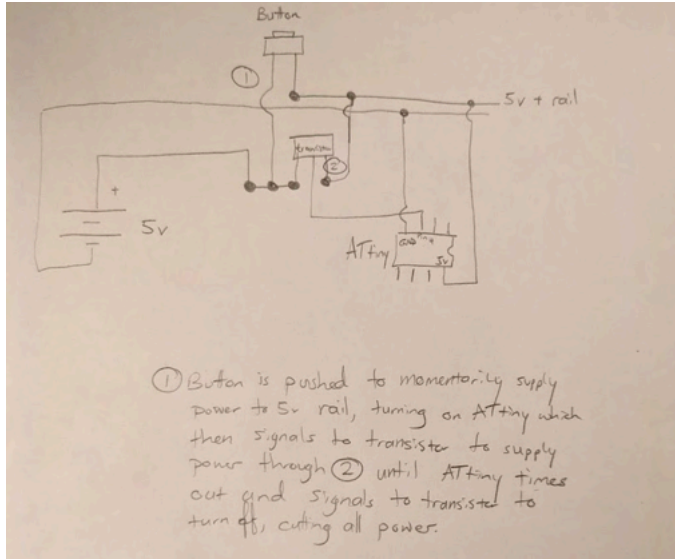 Button
①
5v + rail
transistor
②
+
5v
ATtiny
GND Pin 4
5v
① Button is pushed to momentarily supply
power to 5v rail, turning on ATtiny which
then signals to transister to supply
power through ② until ATtiny times
out and signals to transister to
turn off, cutting all power.